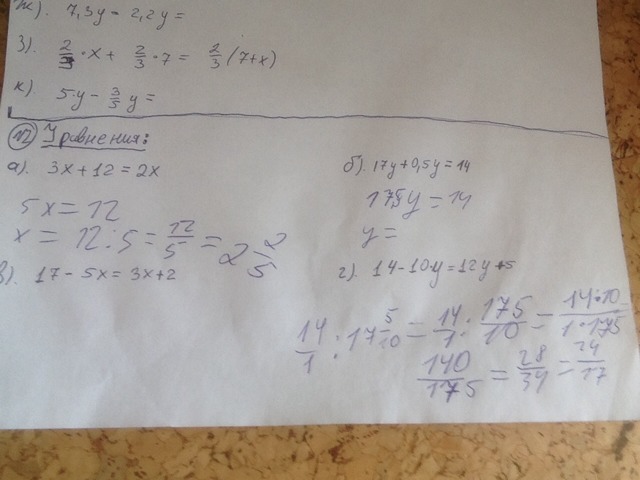 ж). 7,3y - 2,2y =
з). 2/3 · x + 2/3 · 7 = 2/3 (7+x)
к). 5y - 3/5 y =
№2 Уравнения:
а). 3x + 12 = 2x
5x = 12
x = 12 : 5 = 12/5 = 2 2/5
б). 17y + 0,5y = 14
17,5y = 14
y =
в). 17 - 5x = 3x + 2
г). 14 - 10y = 12y + 5
14/1 : 17 5/10 = 14/1 : 175/10 = 14·10/1·175
140/175 = 28/34 = 24/17